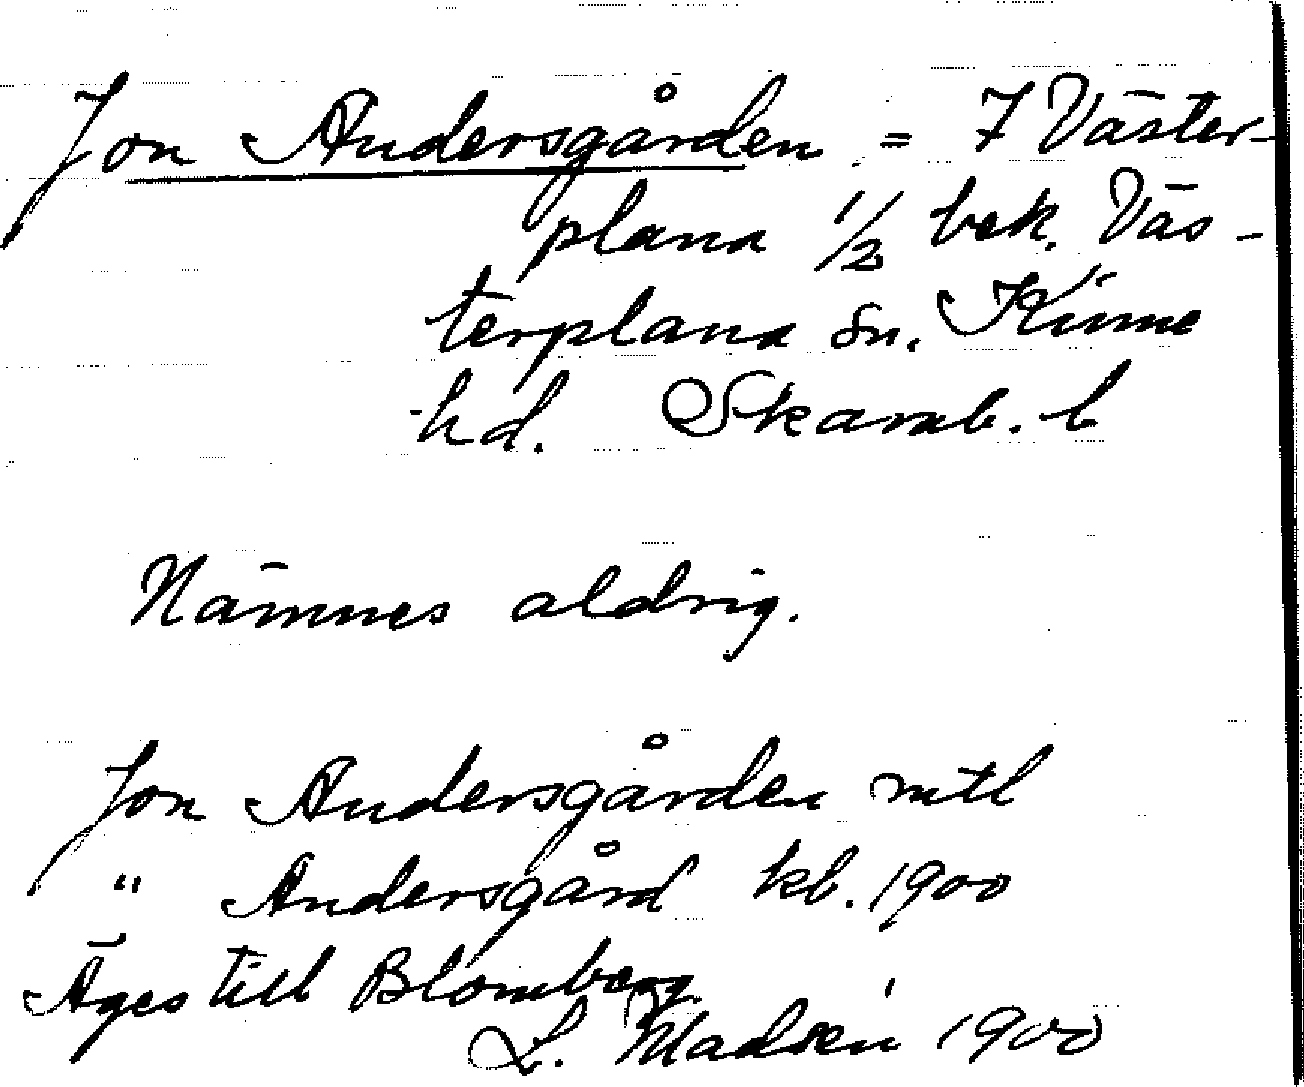 Jon Andersgården = 7 Väster-
plana 1/2 bek. Väs-
terplana sn. Kinne
hd. Skarab. l
Nämnes aldrig.
Jon Andersgården mtl
" Andersgård kb. 1900
Äges till Blomberg
L. Madsén 1900